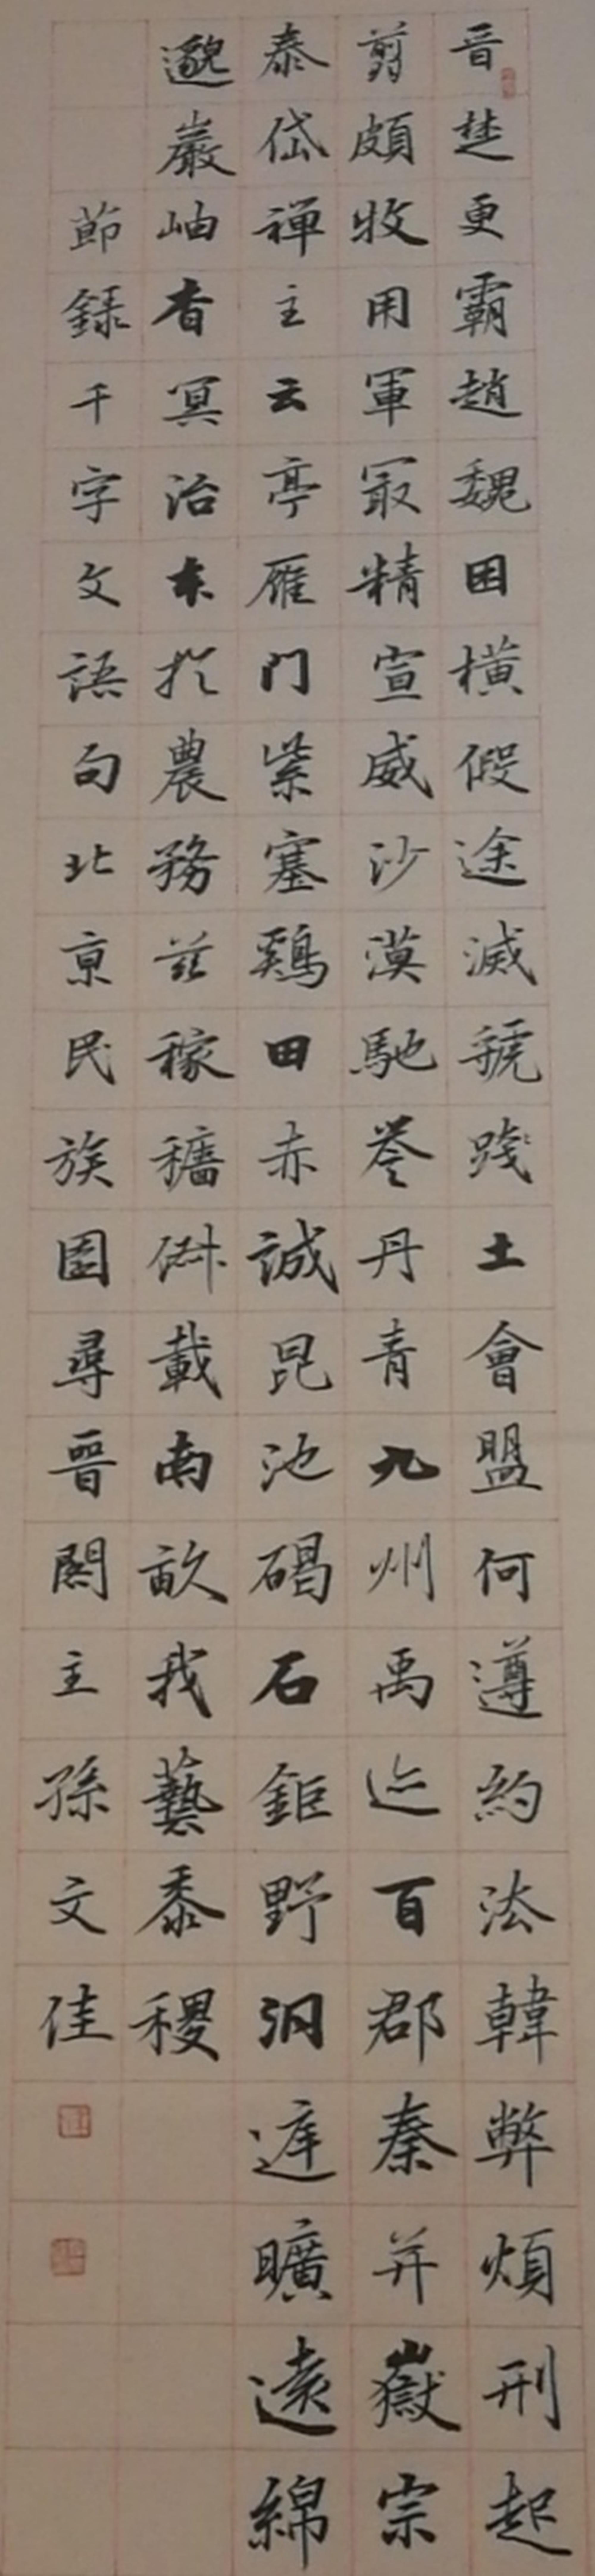 晉楚更霸趙魏困橫假途滅虢踐土會盟何遵約法韓弊煩刑起
翦頗牧用軍冣精宣威沙漠馳誉丹青九州禹迹百郡秦并嶽宗
泰岱禅主云亭雁门紫塞鷄田赤誠昆池碣石鉅野洞遅曠遠綿
邈巖岫杳冥治本扵農務茲稼穡俶載南畝我藝黍稷
節録千字文語句北京民族園尋晉閣主孫文佳